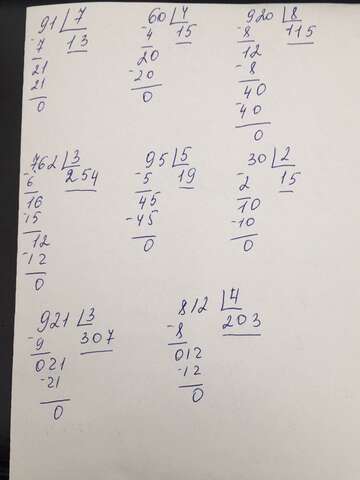 91 7
-7 13
21
21
0
60 4
-4 15
20
-20
0
920 8
-8 115
12
-8
40
-40
0
762 3
-6 254
16
-15
12
-12
0
95 5
-5 19
45
-45
0
30 2
-2 15
10
-10
0
921 3
-9 307
021
-21
0
812 4
-8 203
012
-12
0